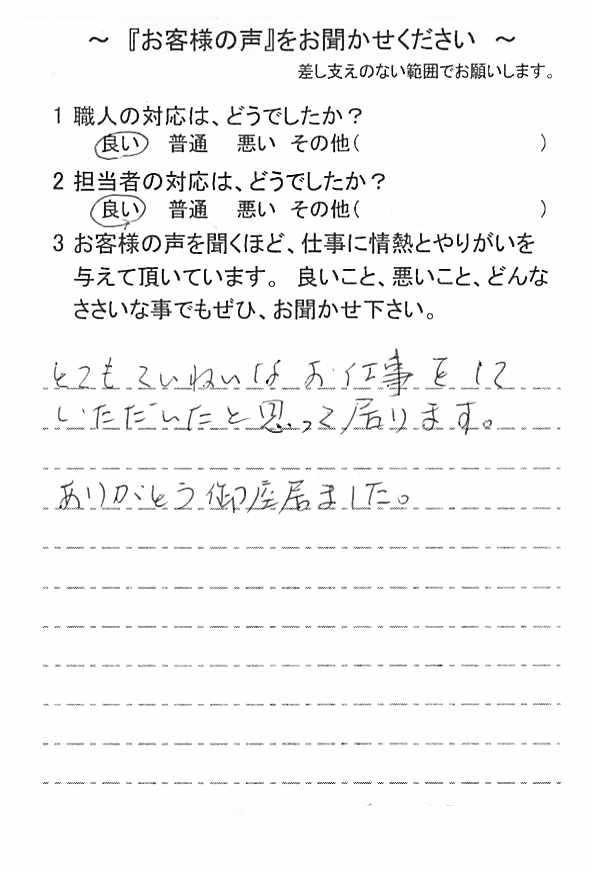 ～ 『お客様の声』をお聞かせください ～
差し支えのない範囲でお願いします。
1 職人の対応は、どうでしたか？
良い 普通 悪い その他( )
2 担当者の対応は、どうでしたか？
良い 普通 悪い その他( )
3 お客様の声を聞くほど、仕事に情熱とやりがいを
与えて頂いています。 良いこと、悪いこと、どんな
ささいな事でもぜひ、お聞かせ下さい。
とてもていねいなお仕事をして
いただいたと思って居ります。
ありがとう御座居ました。